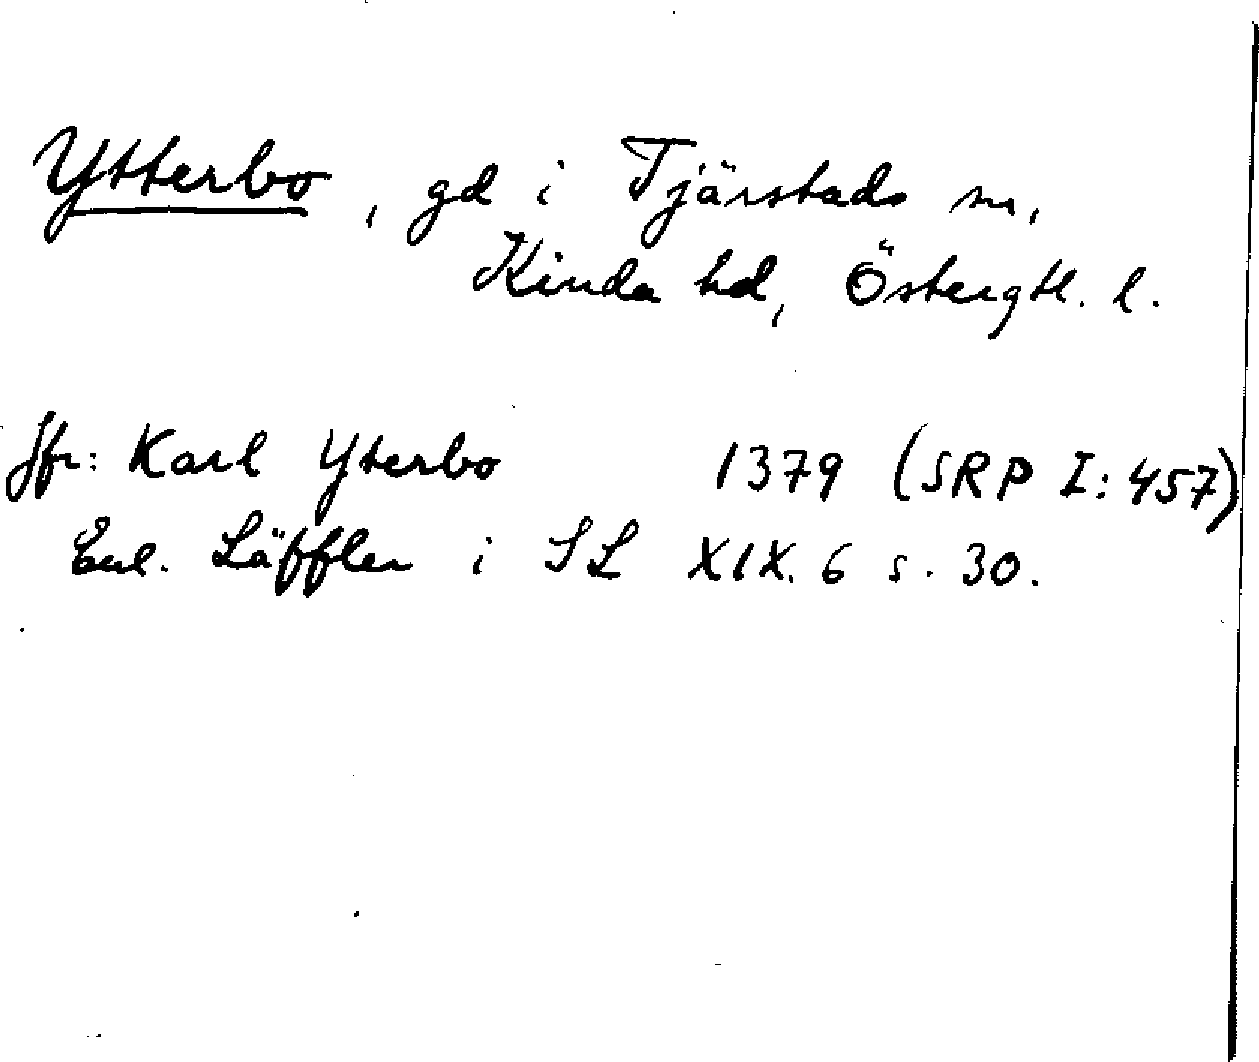 Ytterbo, gd i Tjärstads sn,
Kinda hd, Östergtl. l.
Jfr: Karl Yterbo 1379 (SRP I:457)
Enl. Läffler i SL XIX. 6 s. 30.